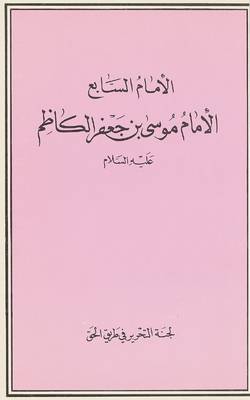 الإمام السابع
الإمام موسى بن جعفر الكاظم
عليه السلام
لجنة التحرير في طريق الحق